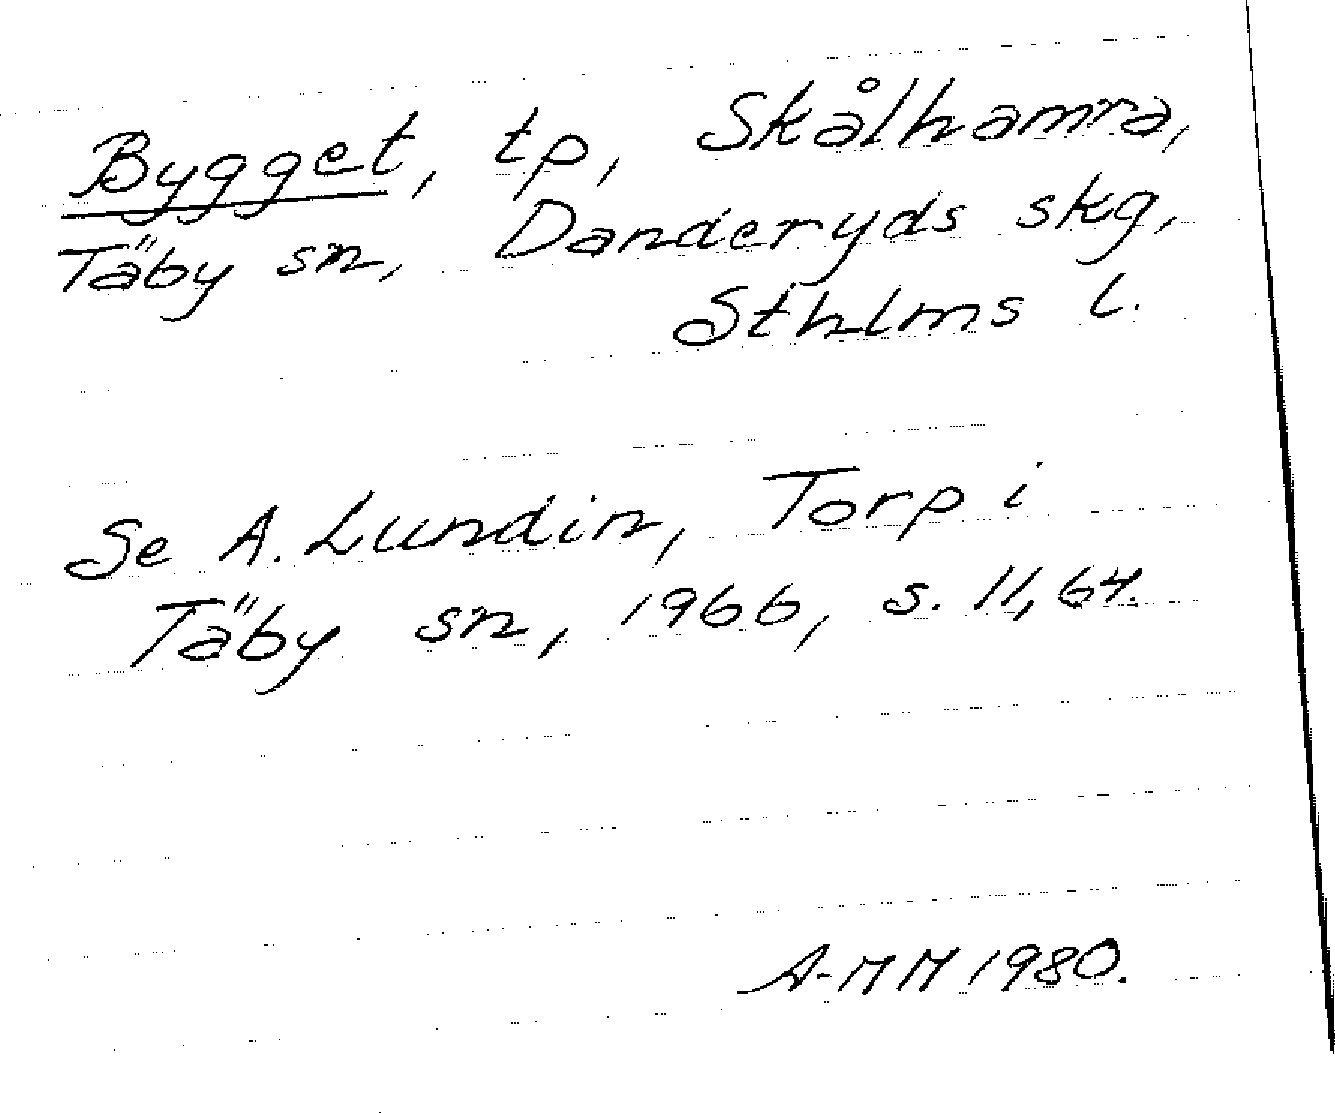 Bygget, tp, Skålhamra,
Täby sn, Danderyds skg,
Sthlms l.
Se A. Lundin, Torp i
Täby sn, 1966, s. 11, 64.
A-MM 1980.